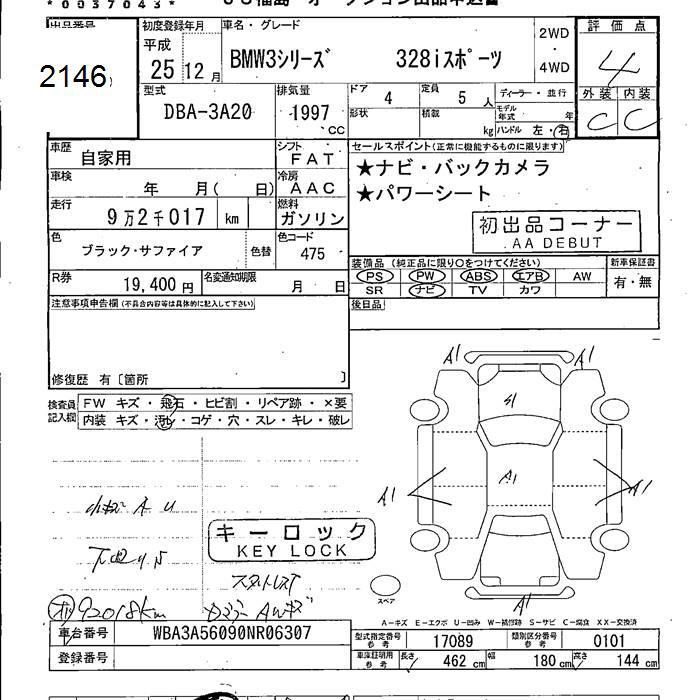 *0037043*
出品番号
2146
初度登録年月
平成
25 12月
車名・グレード
BMW3シリーズ 328iスポーツ
2WD
・
4WD
評価点
4
外装 内装
C C
型式
DBA-3A20
排気量
1997
cc
ドア
4
定員
5 人
ディーラー・並行
形状
積載
kg
モデル年式 年
ハンドル 左・右
車歴
自家用
シフト
FAT
車検
年 月( 日)
冷房
AAC
走行
9万2千017 km
燃料
ガソリン
色
ブラック・サファイア
色替
色コード
475
R券
19,400円
名変通知期限
月 日
セールスポイント(正常に機能するものに限ります)
★ナビ・バックカメラ
★パワーシート
初出品コーナー
AA DEBUT
装備品(純正品に限り○をつけてください)
PS PW ABS エアB AW
SR ナビ TV カワ
新車保証書
有・無
後日品
注意事項申告欄(不具合内容等は具体的に記入して下さい)
修復歴 有〔箇所 〕
検査員記入欄
FW キズ・飛石・ヒビ割・リペア跡・×要
内装 キズ・汚レ・コゲ・穴・スレ・キレ・破レ
A1 A1
A1
A1 A1
A1
小キズ A U
キーロック
KEY LOCK
92018km
スペア
A－キズ E－エクボ U－凹み W－補修跡 S－サビ C－腐食 XX－交換済
車台番号
WBA3A56090NR06307
登録番号
型式指定番号
参考
17089
類別区分番号
参考
0101
車庫証明用
参考
長さ
462 cm
幅
180 cm
高さ
144 cm